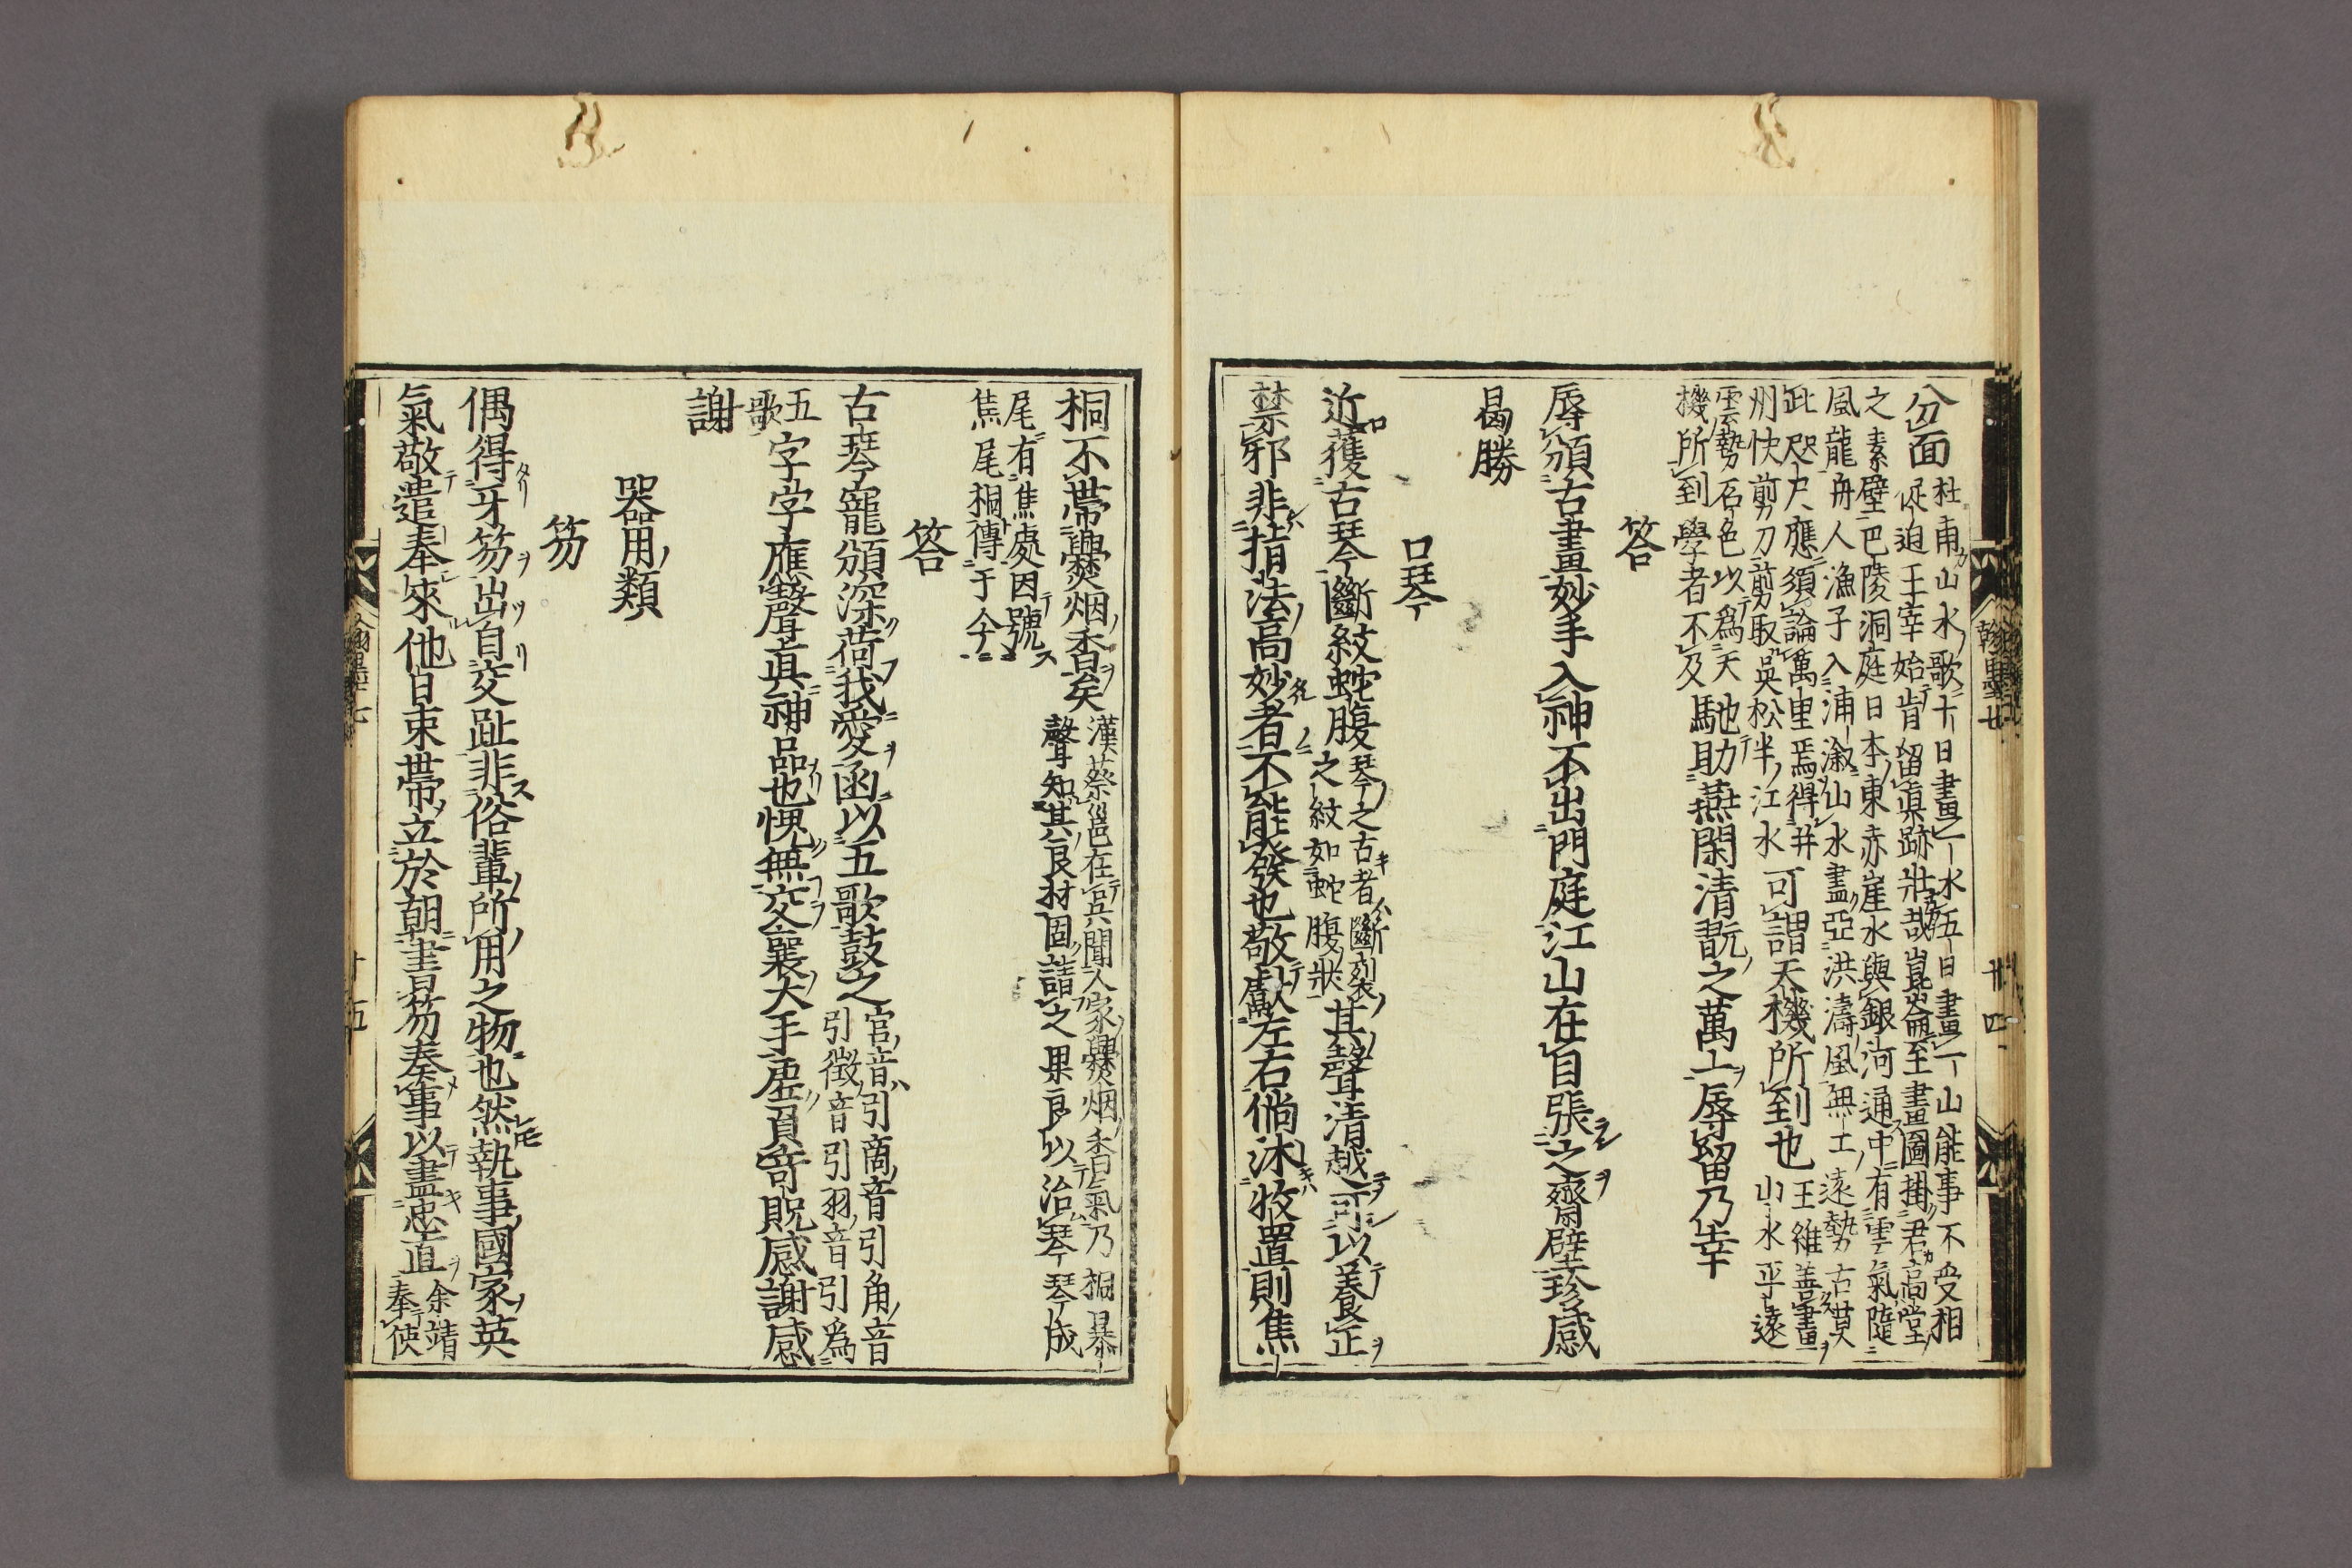 分面
杜甫山水歌十日畫一水五日畫一山能事不受相
促迫王宰始肯留眞跡壯哉崑崙至畫圖掛君高堂
之素壁巴陵洞庭日本東赤崖水與銀河通中有雲氣隨
風龍舟人漁子入浦漵山水盡亞洪濤風無工遠勢古莫
此咫尺應須論萬里焉得并
州快剪刀剪取吳松半江水
可謂天機所到也
王維善畫
山水平遠
雲勢石色以爲天
機所到學者不及
馳助燕閑清翫之萬上辱留乃幸
答
辱頒古畫妙手入神不出門庭江山在目張之齋壁珍感
曷勝
口琴
近蒦古琴斷紋蛇腹
琴之古者斷裂
之紋如蛇腹狀
其聲清越可以養正
禁邪非指法高妙者不能發也敬獻左右倘沐收置則焦
桐不帶爨烟香矣
漢蔡邕在吳聞人家爨烟香氣乃桐暴
聲知其良材固請之果良以治琴琴成
尾有焦處因號
焦尾桐傳于今
答
古琴寵頒深荷我愛函以五歌鼓之
宮音引商音引角音
引徵音引羽音引爲
五
歌
字字應聲眞神品也愧無交襄大手虛頁奇貺感謝感
謝
器用類
笏
偶得牙笏出自交趾非俗輩所用之物也然執事國家英
氣敬遣奉來他日束帶立於朝書昜笏奏事以盡忠直
余靖
奉使
翰墨廿
廿四
十五